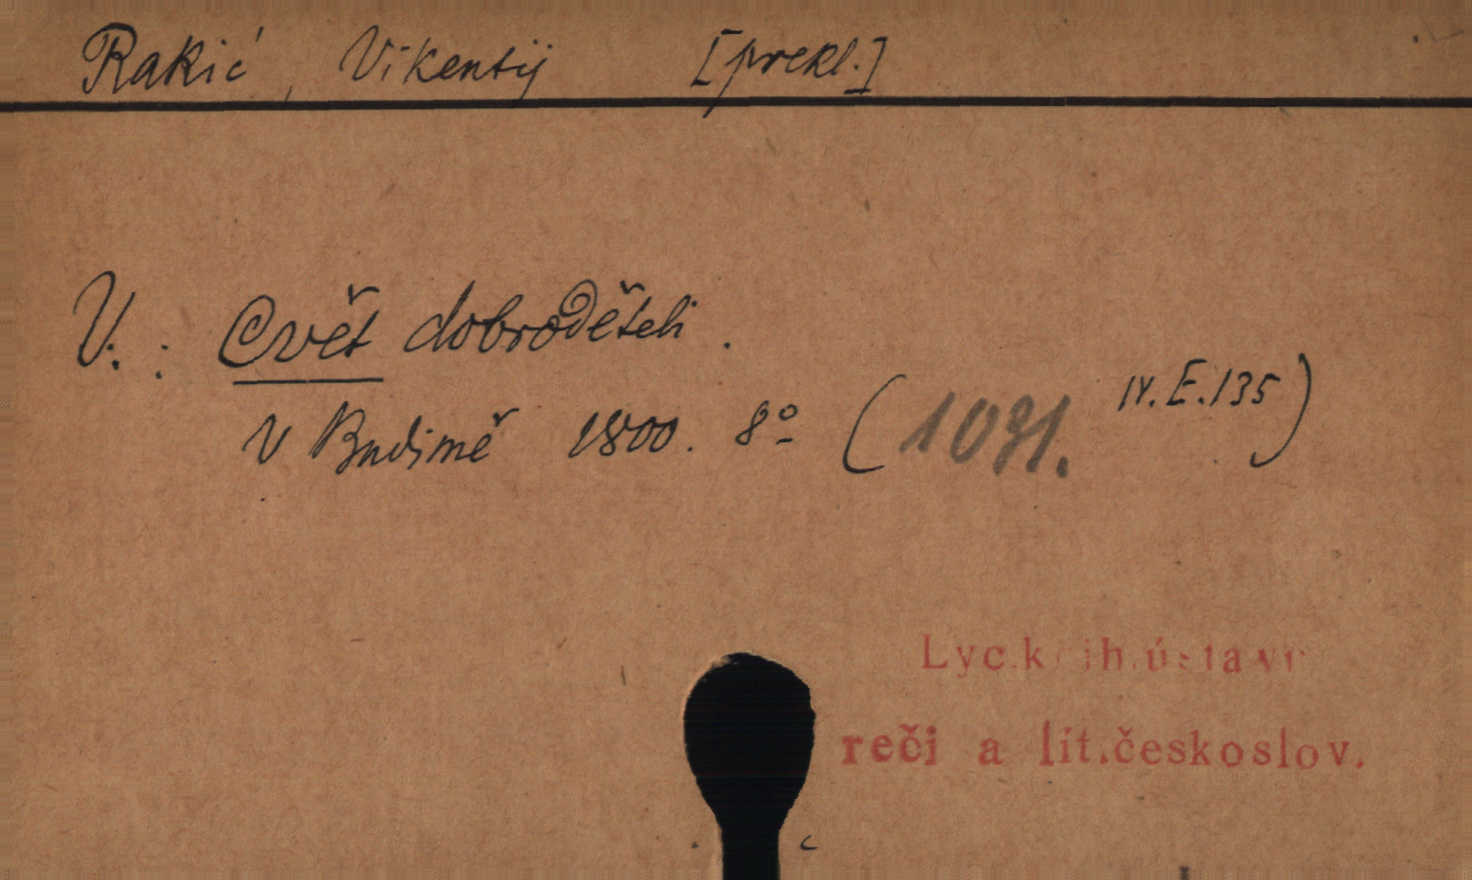 Rakić, Vikentij [prekl.]
V.: Cvět dobroděteli.
V Budimě 1800. 8º (1091. IV.E.135)
Lyc.k ih.ústavu
reči a lit.českoslov.